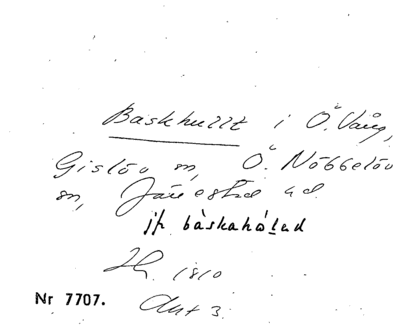 Baskhullt i Ö. Vång,
Gislöv sn, Ö. Nöbbelöv
sn, Järrestad hd
jfr båskahålad
1810
Nr 7707. Akt 3